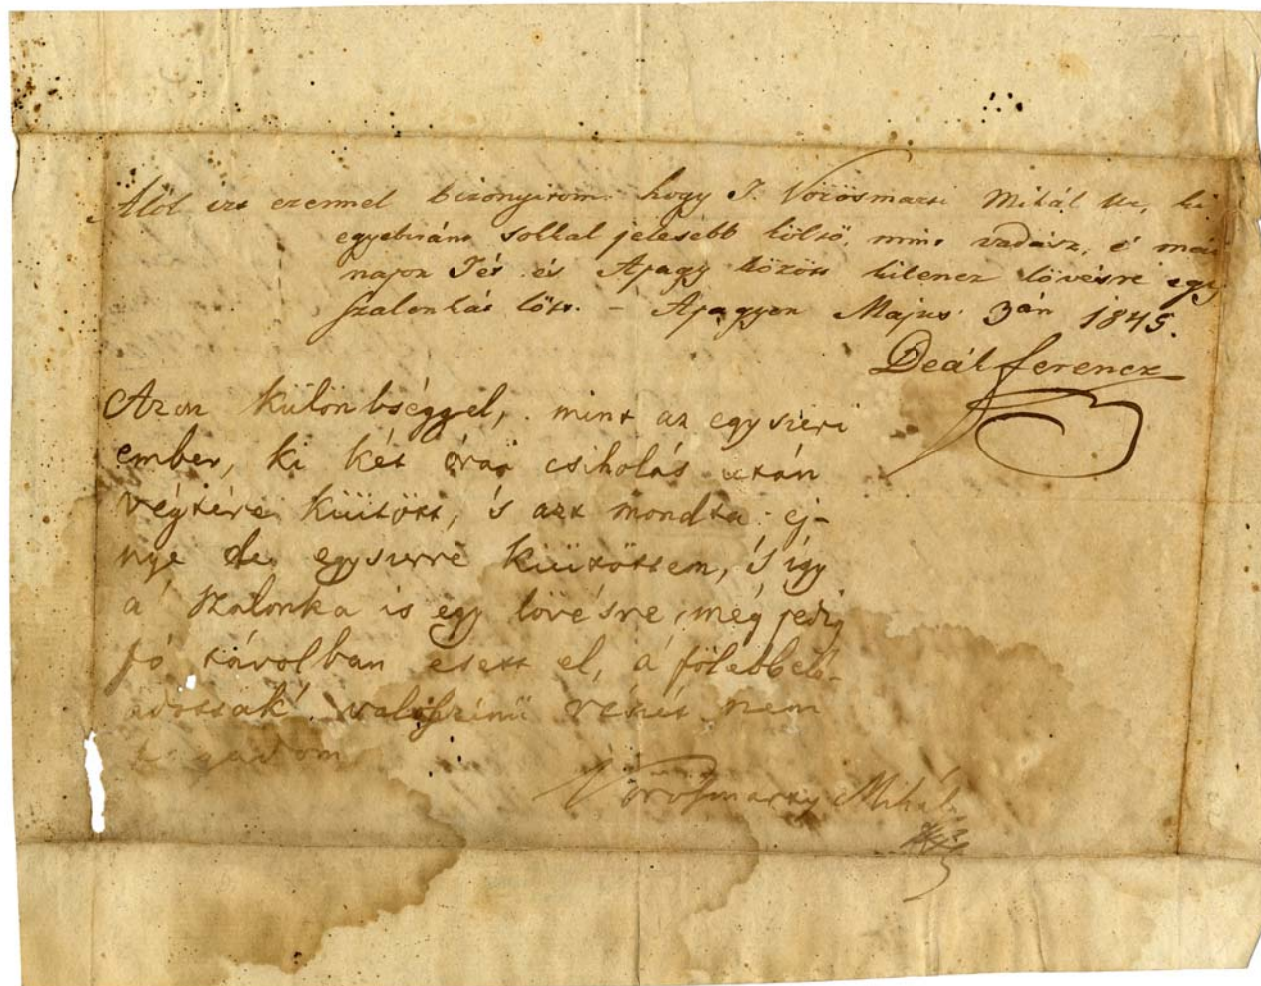 Alól irt ezennel bizonyitom. hogy T. Vörösmarti Mihál Ur, ki
egyebiránt sokkal jelesebb költő, mint vadász, e' mai
napon Tét és Apagy között kilencz lövésre egy
szalonkát lött. – Apagyon Majus 3án 1845.
Deák Ferencz
Azon különbséggel, mint az egyszeri
ember, ki két órai csiholás után
végtére kiütött, 's azt mondta: ej-
nye de egyszerre kiütöttem, 's így
a' szalonka is egy lövésre, még pedig
jó távolban esett el, a' fölebbel
adottak' valószinü részét nem
tagadom
Vörösmarty Mihál